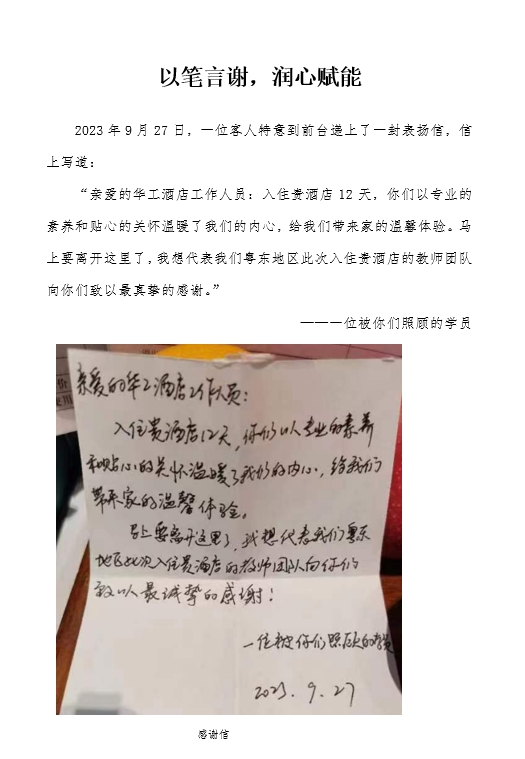 以笔言谢，润心赋能
2023 年 9 月 27 日，一位客人特意到前台递上了一封表扬信，信
上写道：
“亲爱的华工酒店工作人员：入住贵酒店 12 天，你们以专业的
素养和贴心的关怀温暖了我们的内心，给我们带来家的温馨体验。马
上要离开这里了，我想代表我们粤东地区此次入住贵酒店的教师团队
向你们致以最真挚的感谢。”
———一位被你们照顾的学员
亲爱的华工酒店工作人员：
入住贵酒店12天，你们以专业的素养
和贴心的关怀温暖了我们的内心，给我们
带来家的温馨体验。
马上要离开这里了，我想代表我们粤东
地区此次入住贵酒店的教师团队向你们
致以最诚挚的感谢！
一位被你们照顾的学员
2023.9.27
感谢信